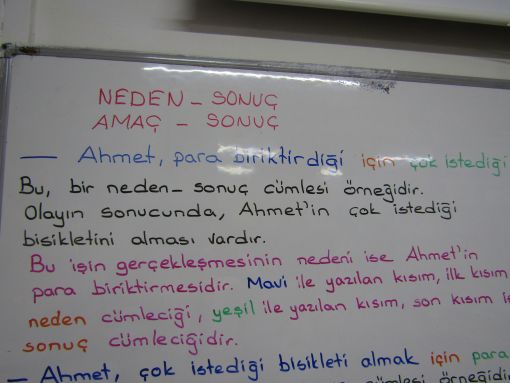 NEDEN - SONUÇ
AMAÇ - SONUÇ
— Ahmet, para biriktirdiği için çok istediği
Bu, bir neden - sonuç cümlesi örneğidir.
Olayın sonucunda, Ahmet'in çok istediği
bisikletini alması vardır.
Bu işin gerçekleşmesinin nedeni ise Ahmet'in
para biriktirmesidir. Mavi ile yazılan kısım, ilk kısım
neden cümleciği, yeşil ile yazılan kısım, son kısım
sonuç cümleciğidir.
— Ahmet, çok istediği bisikleti almak için para
cümlesi örneğidir